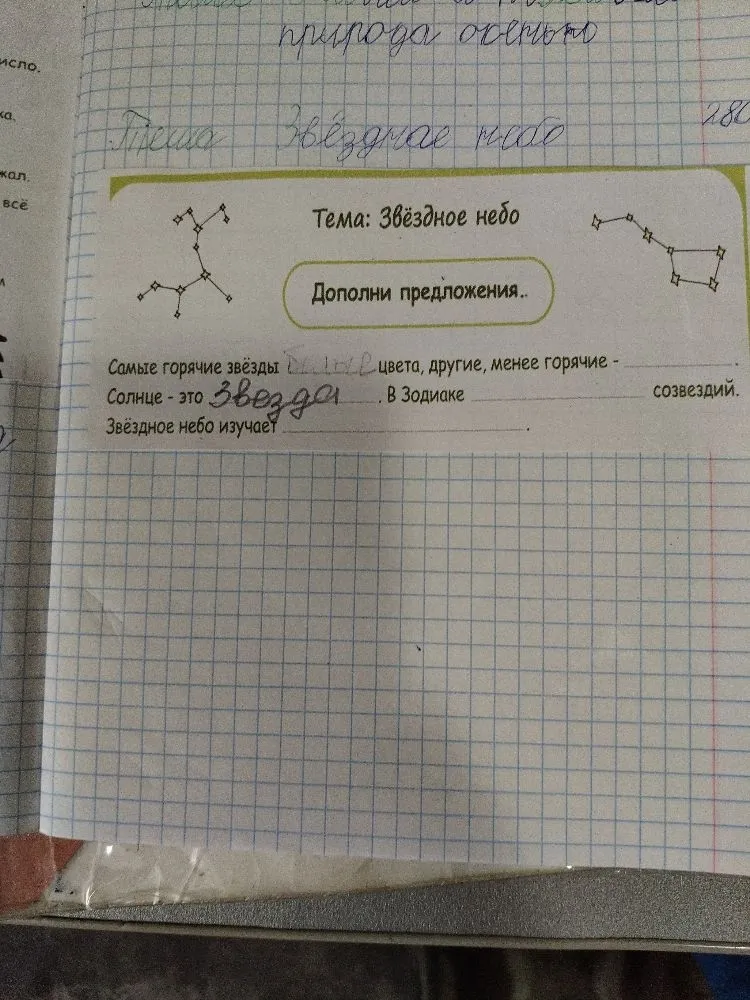 природа осенью
исло.
ка.
жал.
всё
Тема Звёздное небо 280
Тема: Звёздное небо
Дополни предложения..
Самые горячие звёзды белые цвета, другие, менее горячие - ____________.
Солнце - это Звезда. В Зодиаке ____________ созвездий.
Звёздное небо изучает ____________.